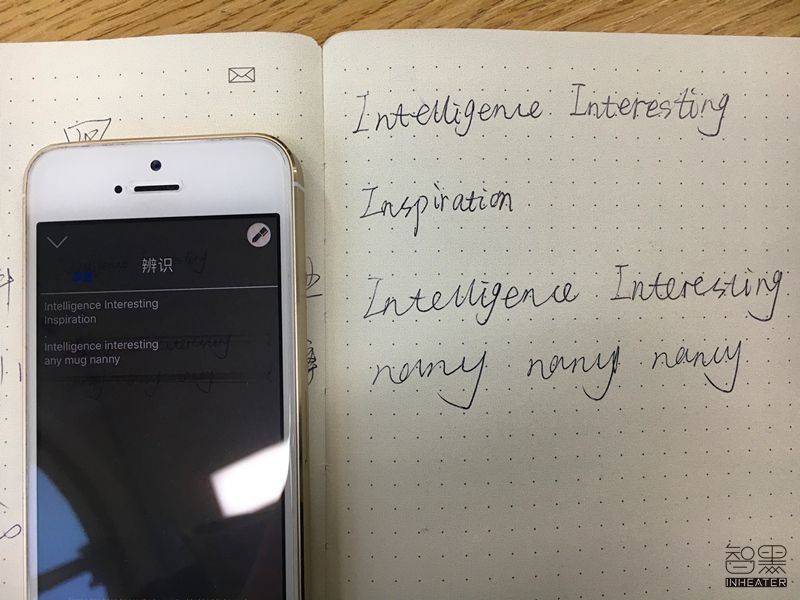 辨识
Intelligence Interesting
Inspiration
Intelligence interesting
any mug nanny
Intelligence Interesting
Inspiration
Intelligence Interesting
nany nany nany
智墨
INHEATER